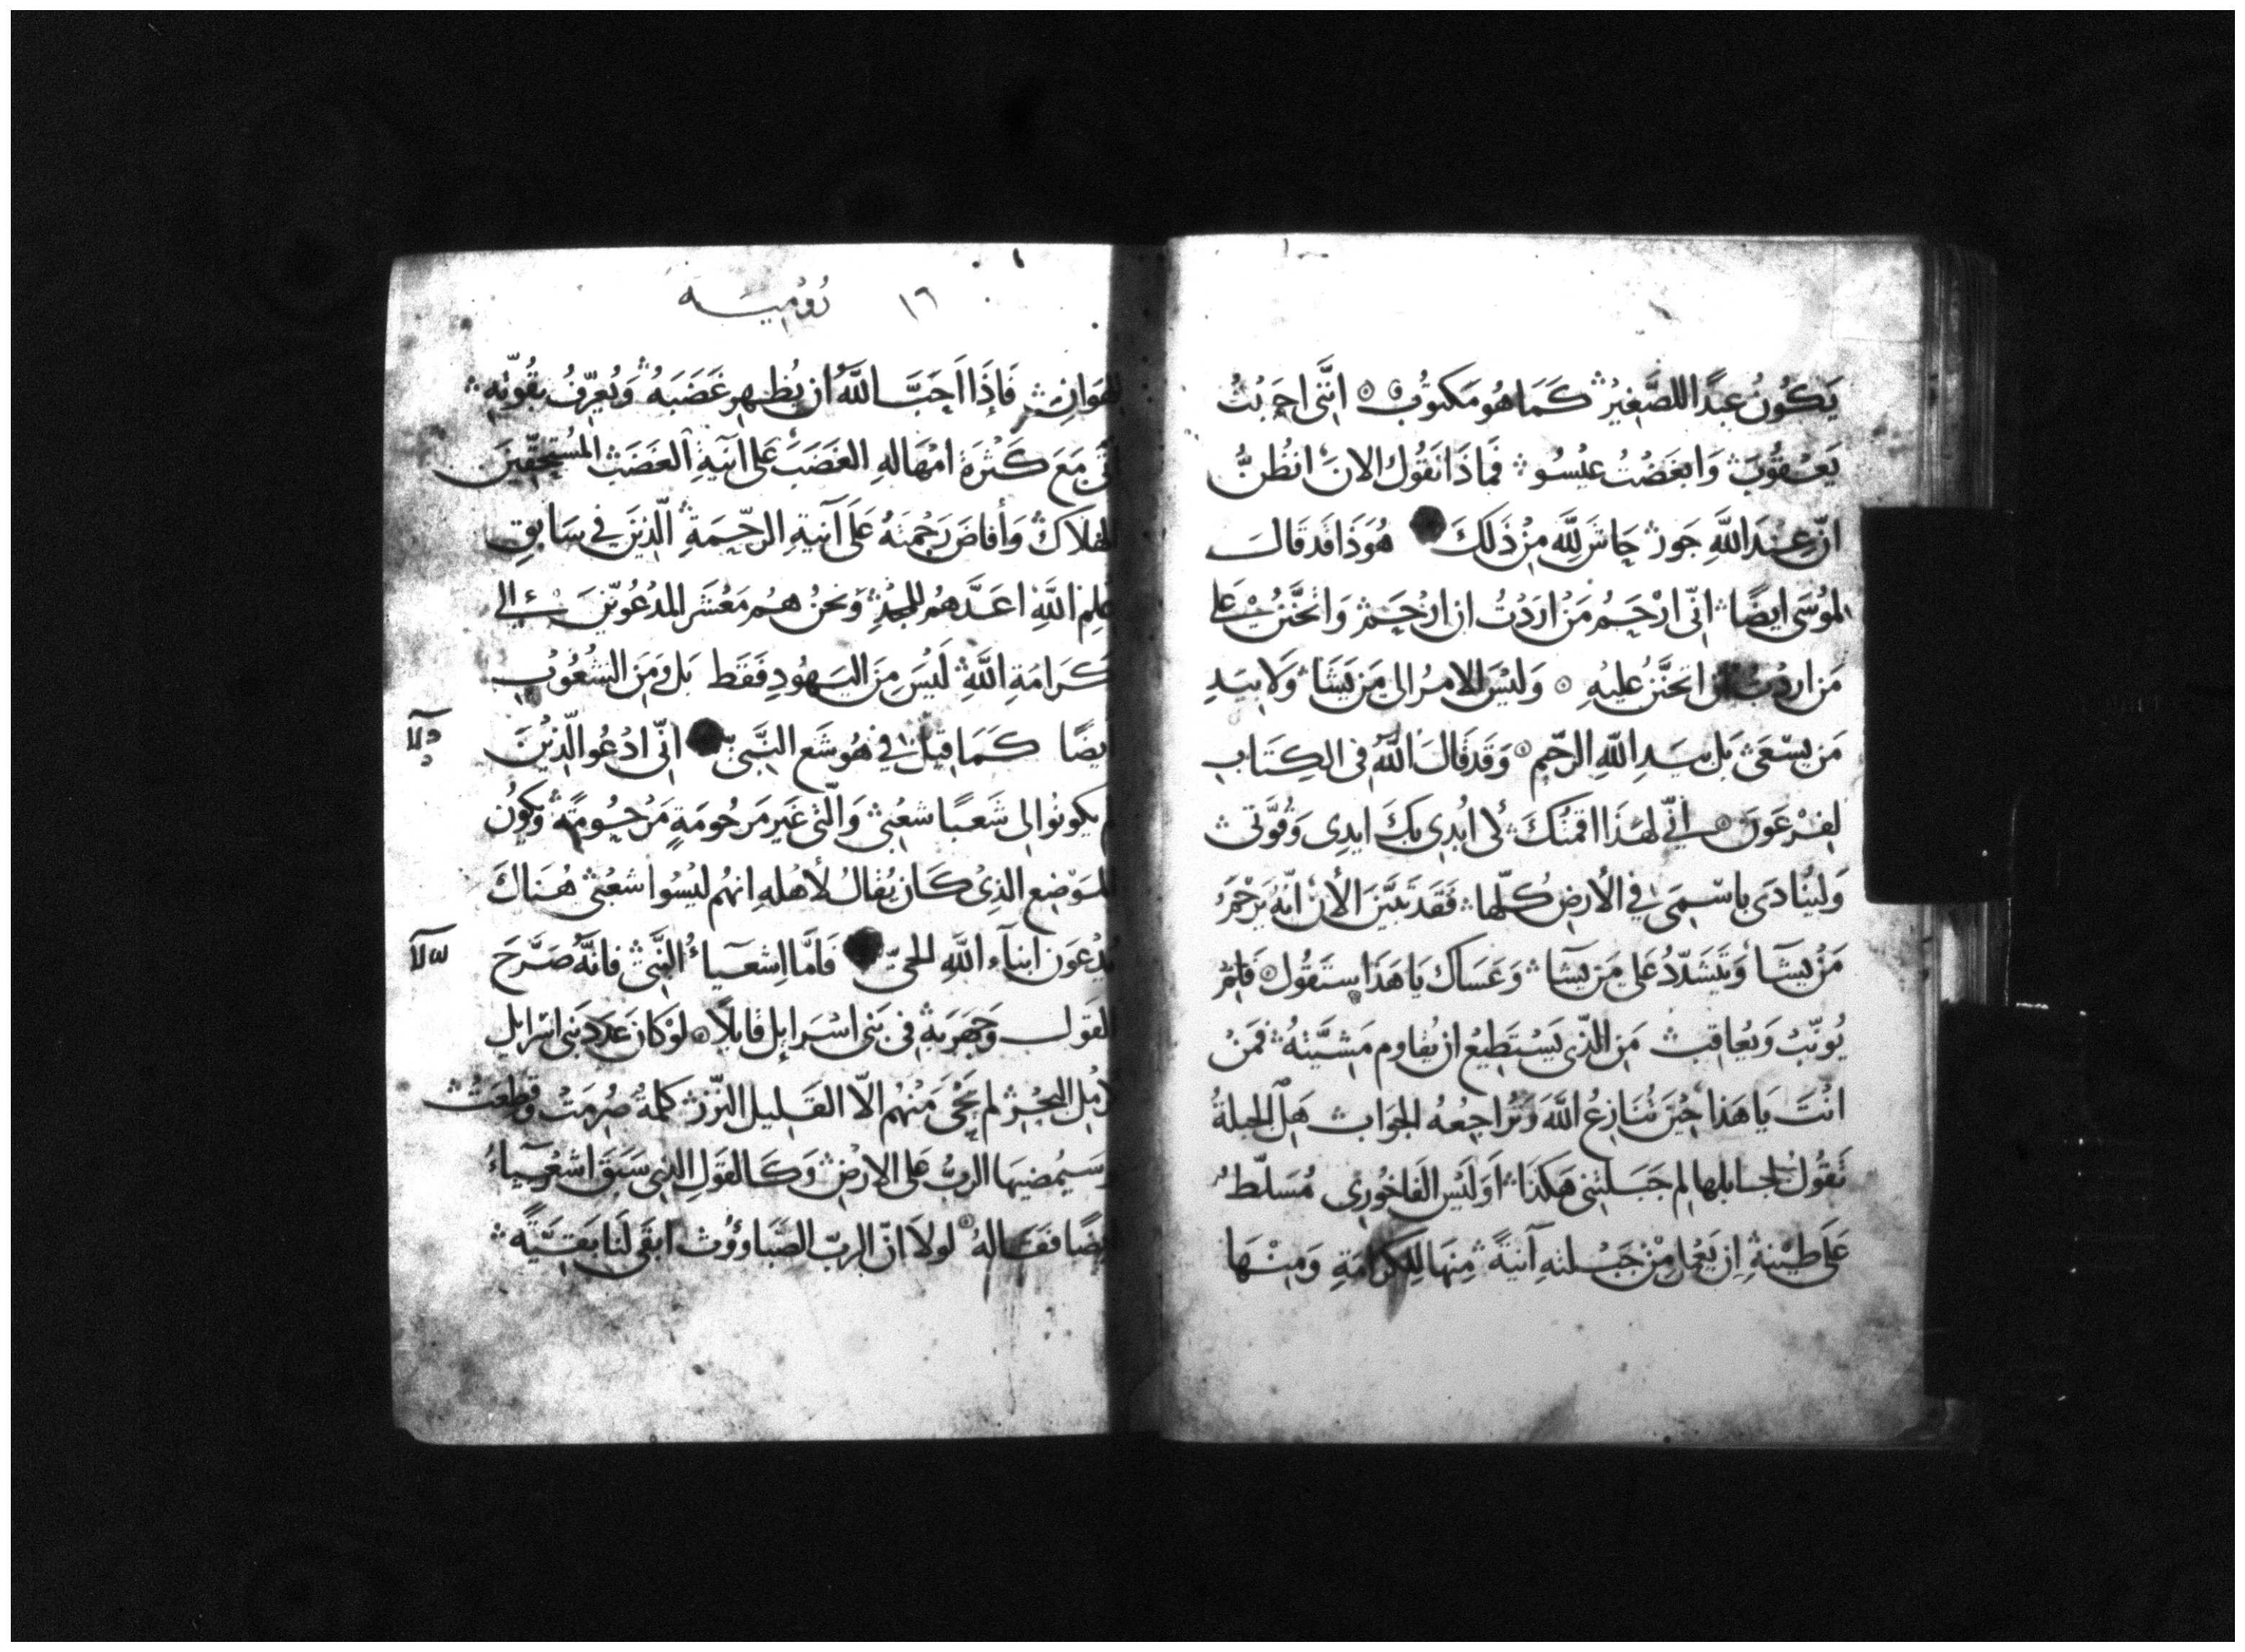 يَكُونُ عبدًا للصَّغِيرِ كَمَا هُو مَكتوُب اِنَّنِى احبَبتُ
يَعْقُوبَ وَابغَضْتُ عيْسُو فَمَاذَا نَقُول الانَ انظُنَّ
انّ عِندَ اللَّهِ جَور حَاشَ لِلَّهِ مِنْ ذَلكَ هُوَذَا قَد قَالَ
لمُوُسَى ايضًا اِنّى ارْحَمُ مَنْ ارَدْتُ ان ارْحَم وَاتحَنَّنُ عَلى
مَن اردْتُ ان اتحنَّنُ عَليهِ وَليْسَ الامرُ الى مَن يَشَا وَلَا بيَدِ
مَن يسْعَى بَل بيَدِ اللَّهِ الرحّيمِ وَقَد قَالَ اللَّهُ فى الكِتَابِ
لفِرْعَوَن اِنّى لهَذَا اقمتُكَ لُابْدِى بِكَ ايدِى وَقُوَّتى
وَليُنَادَى باسْمِى فى الأرضِ كُلّهَا فَقَد تَبَيَّنَ الأنَ انّهُ يَرْحَمُ
مَنْ يشَآ وَيَشَدّدُ عَلى مَن يشَآ وَعَسَاكَ يَا هَذَا سِتَقُول فَلِمَ
يُوَبّبُ وَيُعَاقِبُ مَنِ الذّى يَسْتَطِيعُ ان يُقاوِم مَشِيَّتهُ فمَنْ
انْتَ يَا هَذَا حِيْنَ تُنَازِعُ اللَّهَ وَتُرَاجِعُهُ الجَوَاب هَل الجبلةُ
تَقُولُ لجَابلهَا لِم جَبَلتَنِى هَكذَا اَوَ لَيْسَ الفَاخُورِى مُسَلّطٌ
عَلَى طيْنهِ ان يَعْمَل مِنْ جَبْلتهِ آنيَةً مِنهَا لِلكَرَامَةِ وَمِنْهَا
١٦ رُوُمِيَه
للِهَوَانِ فَإِذَا احَبَّ اللَّهُ ان يُظهِر غَضَبَهُ وَيُعَرّفُ بقُوّتِهِ
مَعَ كَثْرَة امْهَالهِ الغَضَبَ عَلى آنيَةِ الغَضَب المُستَحِقّينَ
للِهَلَاكِ وَأفاضَ رَحْمَتَهُ عَلَى آنيَةِ الرحّمَةِ الّذِيْنَ فى سَابقِ
عَلِمِ اللَّهِ اعَدَّهُم للمَجْدِ وَنحنُ هُم مَعْشَر المدْعُوّينَ الى
كَرَامَةِ اللَّهِ لَيْسَ مِنَ اليَهُودِ فَقَط بَل وَمِنَ الشُعُوُبِ
ايضًا كَمَا قِيْلَ فى هُوشَع النَّبىّ انّى ادْعُو الّذيْنَ
لم يكونوُا لى شَعبًا شعْبى وَالّتى غَيرَ مَرحُومَةٍ مَرْحُومَةً وَيكوُن
المَوْضِع الذِى كَان يُقالُ لأهْلهِ انهُم ليْسُوا شعْبى هُنَاكَ
يُدْعَوَن ابنآء اللَّهِ الحَىّ فَامَّا اِشعيَآءُ النَّبىّ فانَّهُ صَرَّحَ
القَول وَجَهَر بهِ فى بَنى اسْرَايِل قَايلًا لوْ كانَ عَدَد بَنى اسْرَايل
كرَمْلِ البَحْرِ لم يَنْجُ مِنْهُم الّا القَلِيل النّزر كلمَةٌ صُرِمَتْ وَقُطعَتْ
وَسَيُمْضيهَا الربُّ عَلى الارْضِ وَكَالقَولِ الذِى سَبَقَ اشعيَآءُ
ايضًا فَقَالهُ لولَا انّ الربّ الصّبَاوُوُت ابقَى لَنَا بَقيَّةً